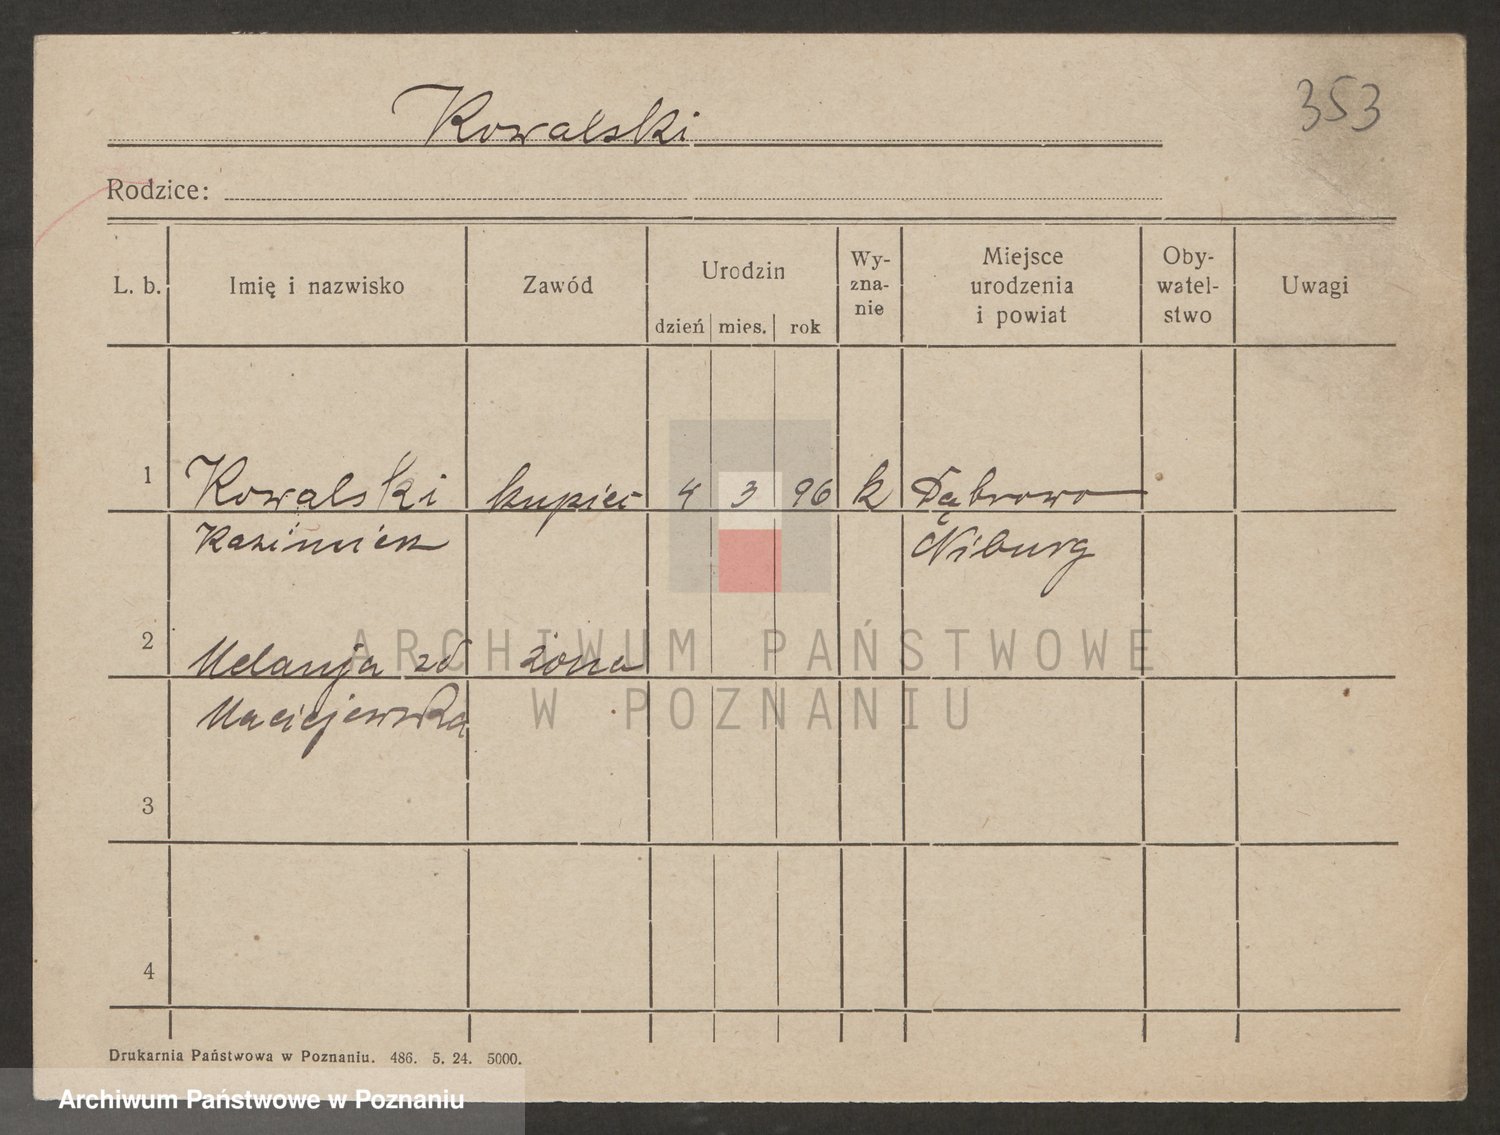 Kowalski
353
Rodzice:
L. b. Imię i nazwisko Zawód Urodzin dzień mies. rok Wy-zna-nie Miejsce urodzenia i powiat Oby-watel-stwo Uwagi
1 Kowalski kupiec 4 3 96 k Dąbrowo
Kazimierz Niburg
2 Melanja zd żona
Maciejewska
3
4
ARCHIWUM PAŃSTWOWE
W POZNANIU
Drukarnia Państwowa w Poznaniu. 486. 5. 24. 5000.
Archiwum Państwowe w Poznaniu